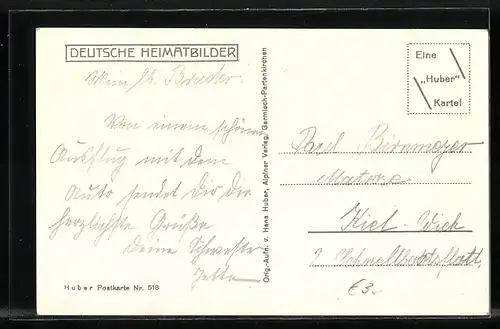 DEUTSCHE HEIMATBILDER
Mein lb. Bruder!
Von einem schönen
Ausflug mit dem
Auto sendet Dir die
herzlichste Grüße
deine Schwester
Huber Postkarte Nr. 518
Orig.-Aufn. v. Hans Huber, Alpiner Verlag, Garmisch-Partenkirchen
Eine
„Huber"
Kartel
Paul Birnmeyer
Matrose
Kiel-Wick
2. Schnellbootsflott.
€3.-